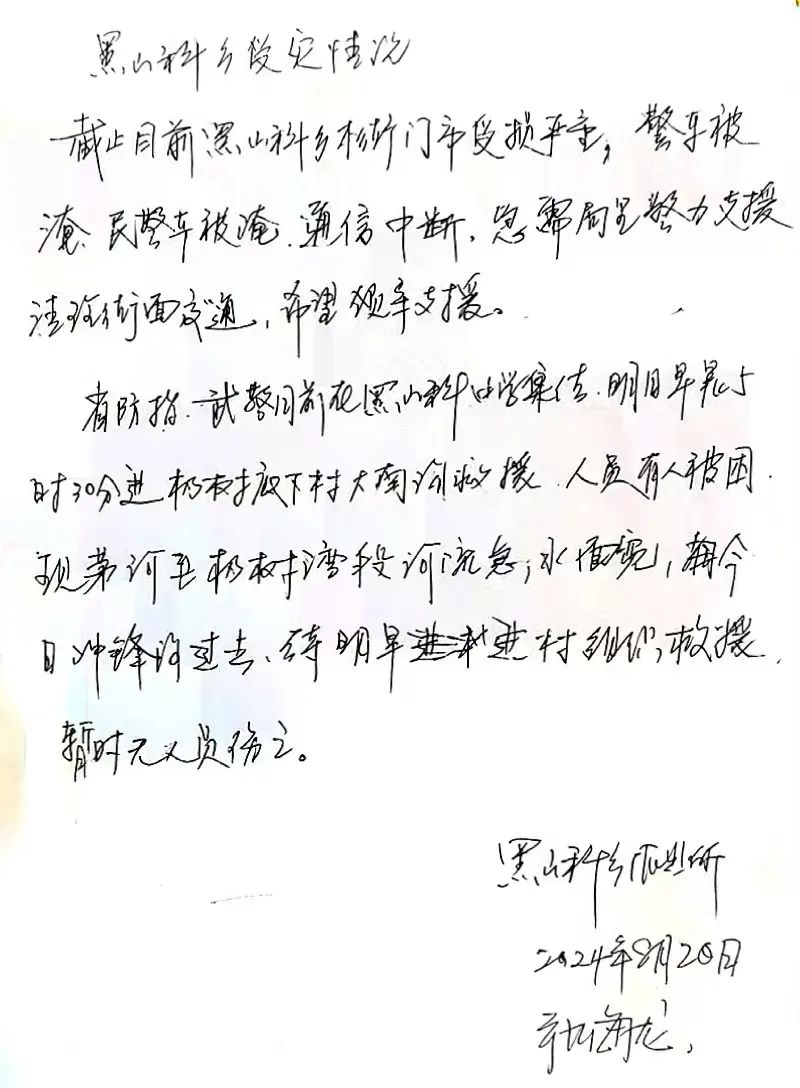 黑山科乡受灾情况
截止目前黑山科乡村街门市受损严重，警车被
淹、民警车被淹、通信中断，急需局里警力支援
清理街面交通，希望领导支援。
省防指、武警目前在黑山科中学集结、明日早晨5
时30分进杨树底下村大南沟救援、人员有人被困、
现茅河至杨树湾段河流急，水面宽，
日冲锋 过去、待明早进村组织救援，
暂时无人员伤亡。
黑山科乡派出所
2024年8月20日
海龙